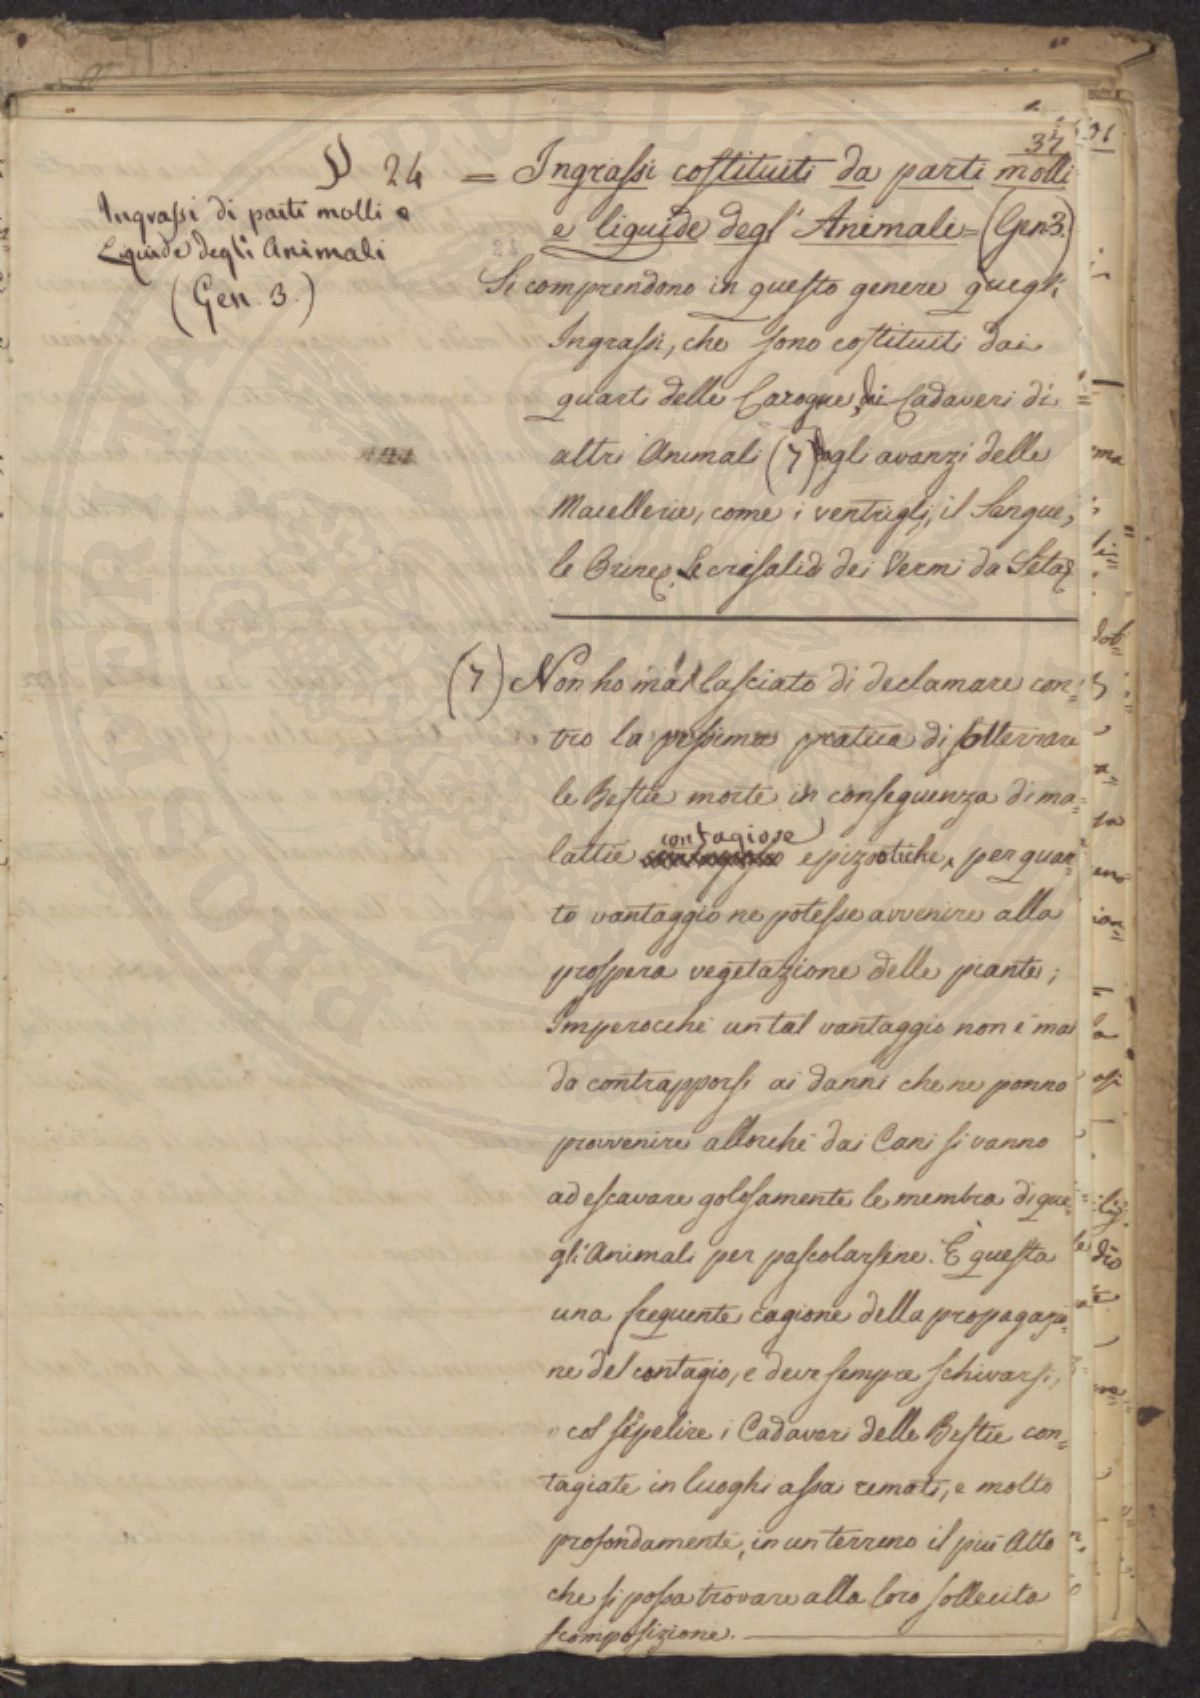 34
§ 24 = Ingrassi costituiti da parti molli
e liquide degl' Animali = (Gen 3.)
Ingrassi di parti molli e
Liquide degli Animali
(Gen. 3.)
Si comprendono in questo genere quegli
Ingrassi, che sono costituiti dai
quarti delle Carogne, dai Cadaveri di
altri Animali (7) dagli avanzi delle
Macellerie, come i ventrigli, il Sangue,
le Orine, Le crisalidi dei Vermi da Seta
(7) Non ho mai lasciato di declamare con=
tro la pessima pratica di sotterrare
le Bestie morte in conseguenza di ma=
lattie contagiose epizootiche, per quan=
to vantaggio ne potesse avvenire alla
prospera vegetazione delle piante;
Imperocché un tal vantaggio non è mai
da contrapporsi ai danni che ne ponno
provvenire allorché dai Cani si vanno
ad escavare golosamente le membra di que=
gli Animali per pascolarsene. È questa
una frequente cagione della propagazio=
ne del contagio, e deve sempre schivarsi,
col sepelire i Cadaveri delle Bestie con=
tagiate in luoghi assai remoti, e molto
profondamente, in un terreno il più Atto
che si possa trovare alla loro sollecita
scomposizione.